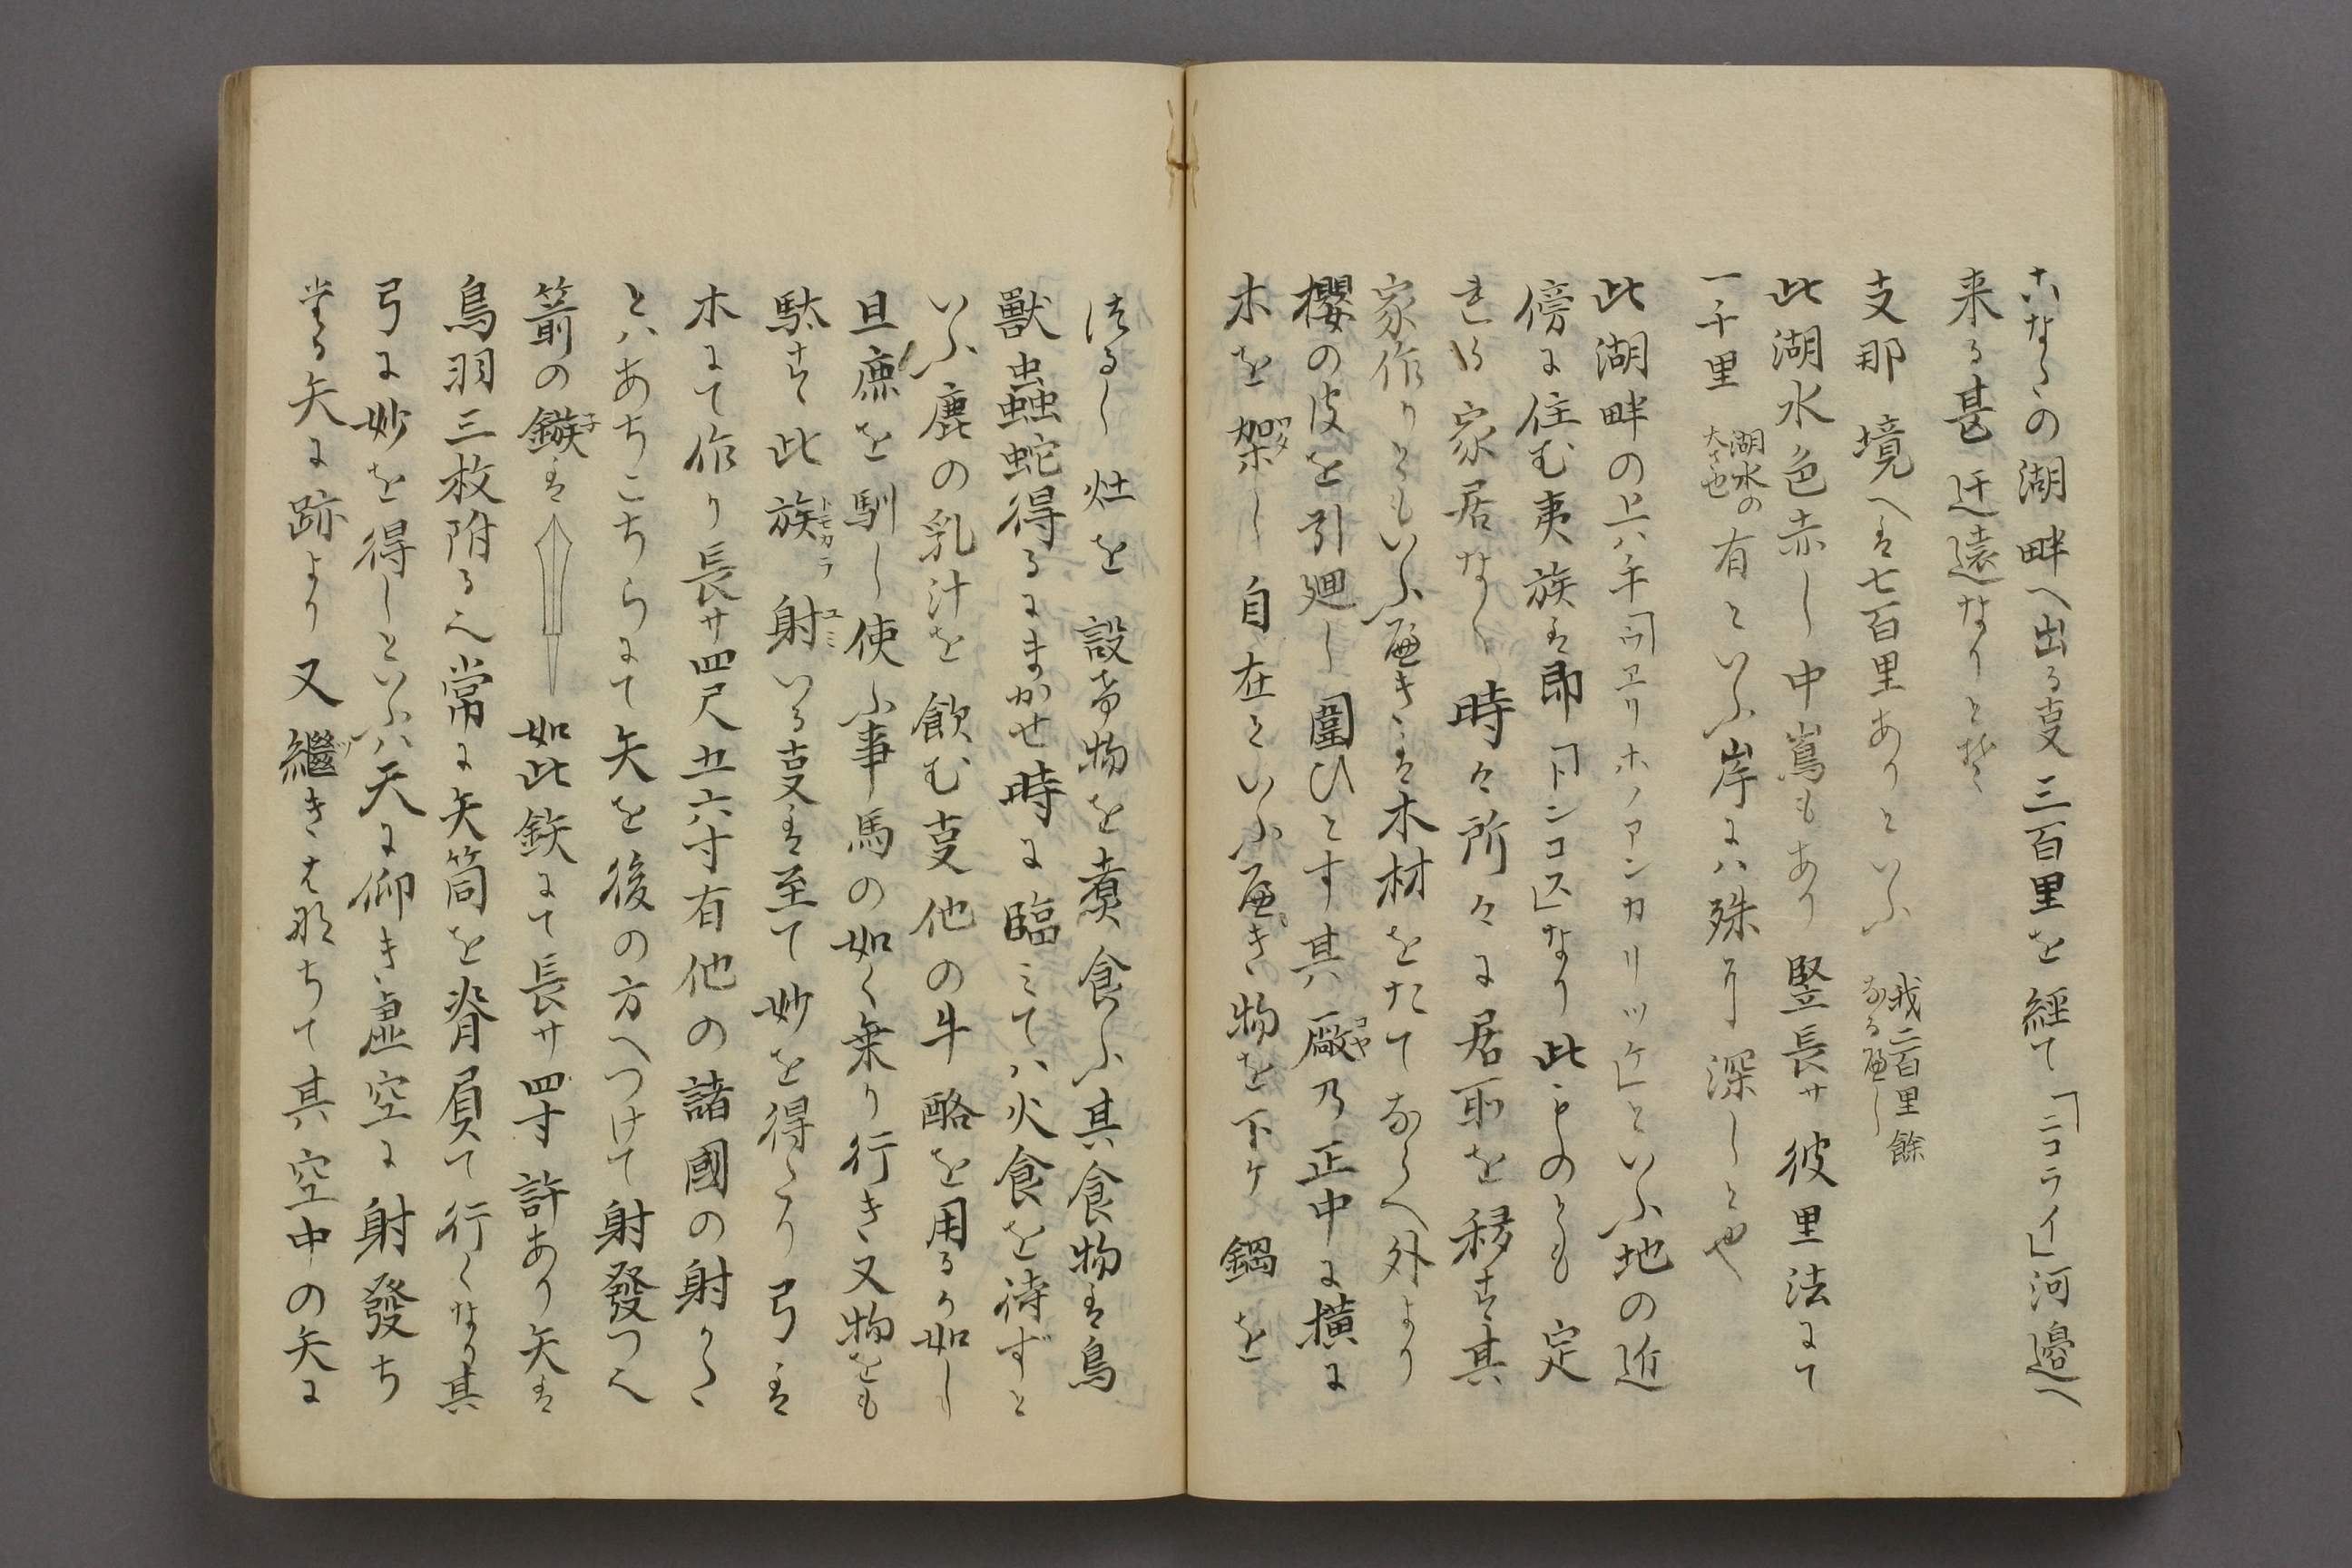 こなたの湖畔へ出る支三百里を経て「ニコライ」河邉へ
来る甚迂遠なりとぞ
支那境へは七百里ありといふ 我二百里餘なる歴し
此湖水色赤し中嶌もあり竪長サ彼里法にて
一千里 湖水の大さ也 有といふ岸にハ殊に深しとや
此湖畔の上ハ年「ウエリホノアンカリツケ」といふ地の近
傍に住む夷族は即「トンコス」なり此ものとも定
まれる家居なく時々所々に居所を移す其
家作りともいふ歴きは木材をたてならへ外より
櫻の皮を引廻し圍ひとす其廠乃正中に横に
木を架し自在といふ歴き物を下ケ鍋を
つるし灶を設 物を煮食ふ其食物は鳥
獸虫蛇得るにまかせ時に臨ミてハ火食を待ずと
いふ鹿の乳汁を飲む支他の牛酪を用るか如し
且鹿を馴し使ふ事馬の如く乗り行き又物をも
駄す此族トモカラ射ユミいる支は至て妙を得たり弓は
木にて作り長サ四尺五六寸有他の諸國の射かた
とハあちこちらにて矢を後の方へつけて射發つへ
箭の鏃子は 如此鉄にて長サ四寸許あり矢は
鳥羽三枚附る也常に矢筒を脊負て行くなり其
弓に妙を得しといふハ天に仰き虚空に射發ち
當る矢に跡より又繼ツきはなちて其空中の矢に